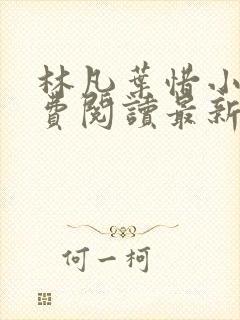 林凡葉惜小
費閱讀最新
何一柯